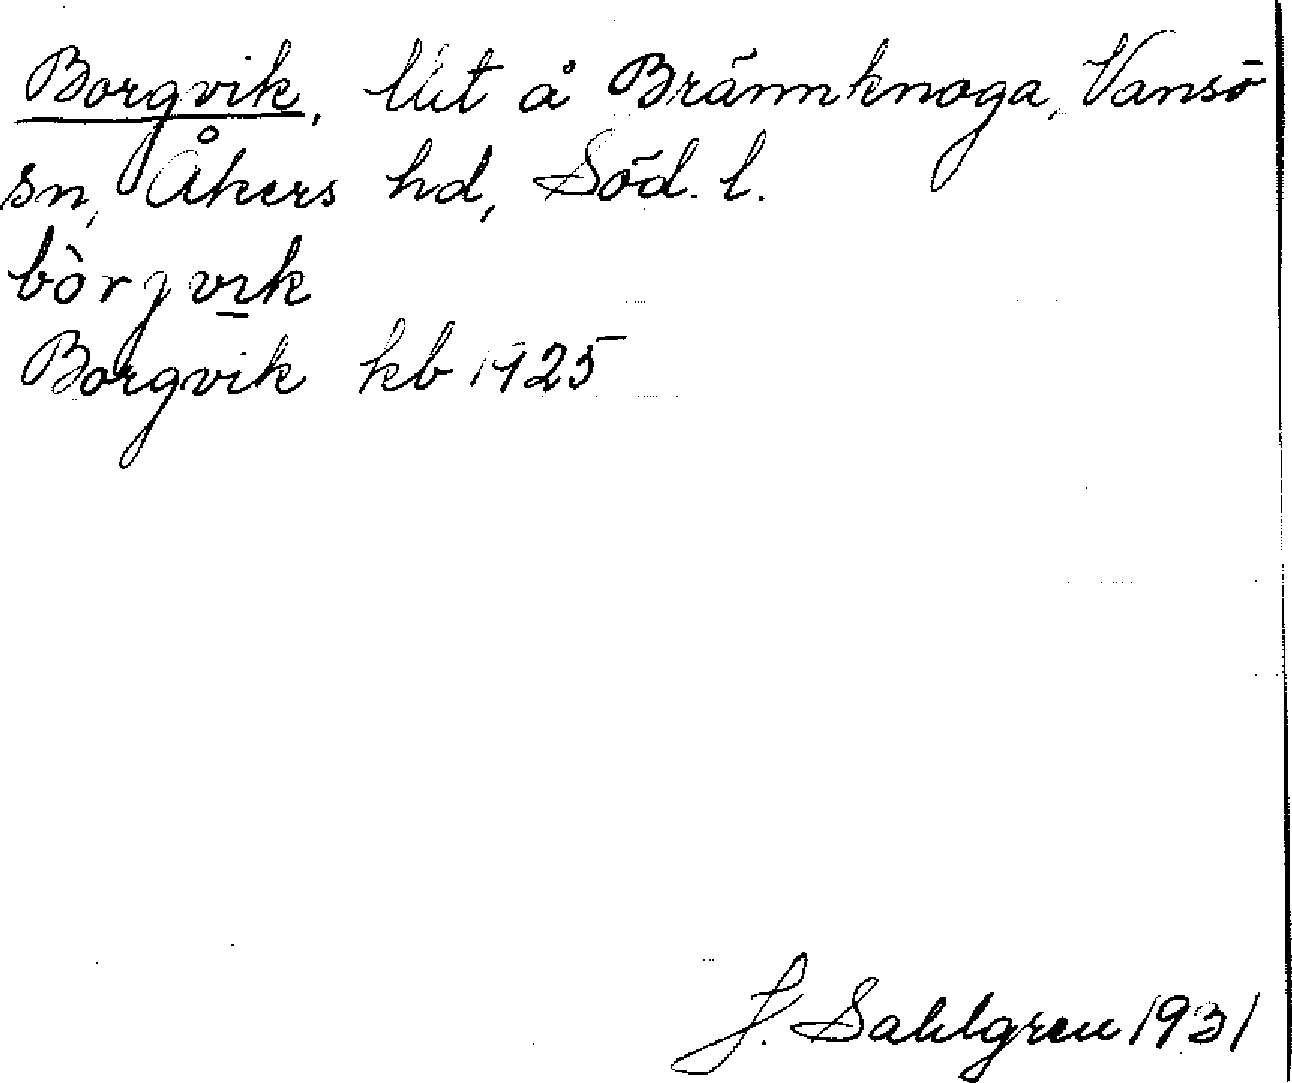 Borgvik, lht å Brännknaga, Vansö
sn, Åkers hd, Söd. l.
bòrjvik
Borgvik kb 1925
J. Sahlgren 1931